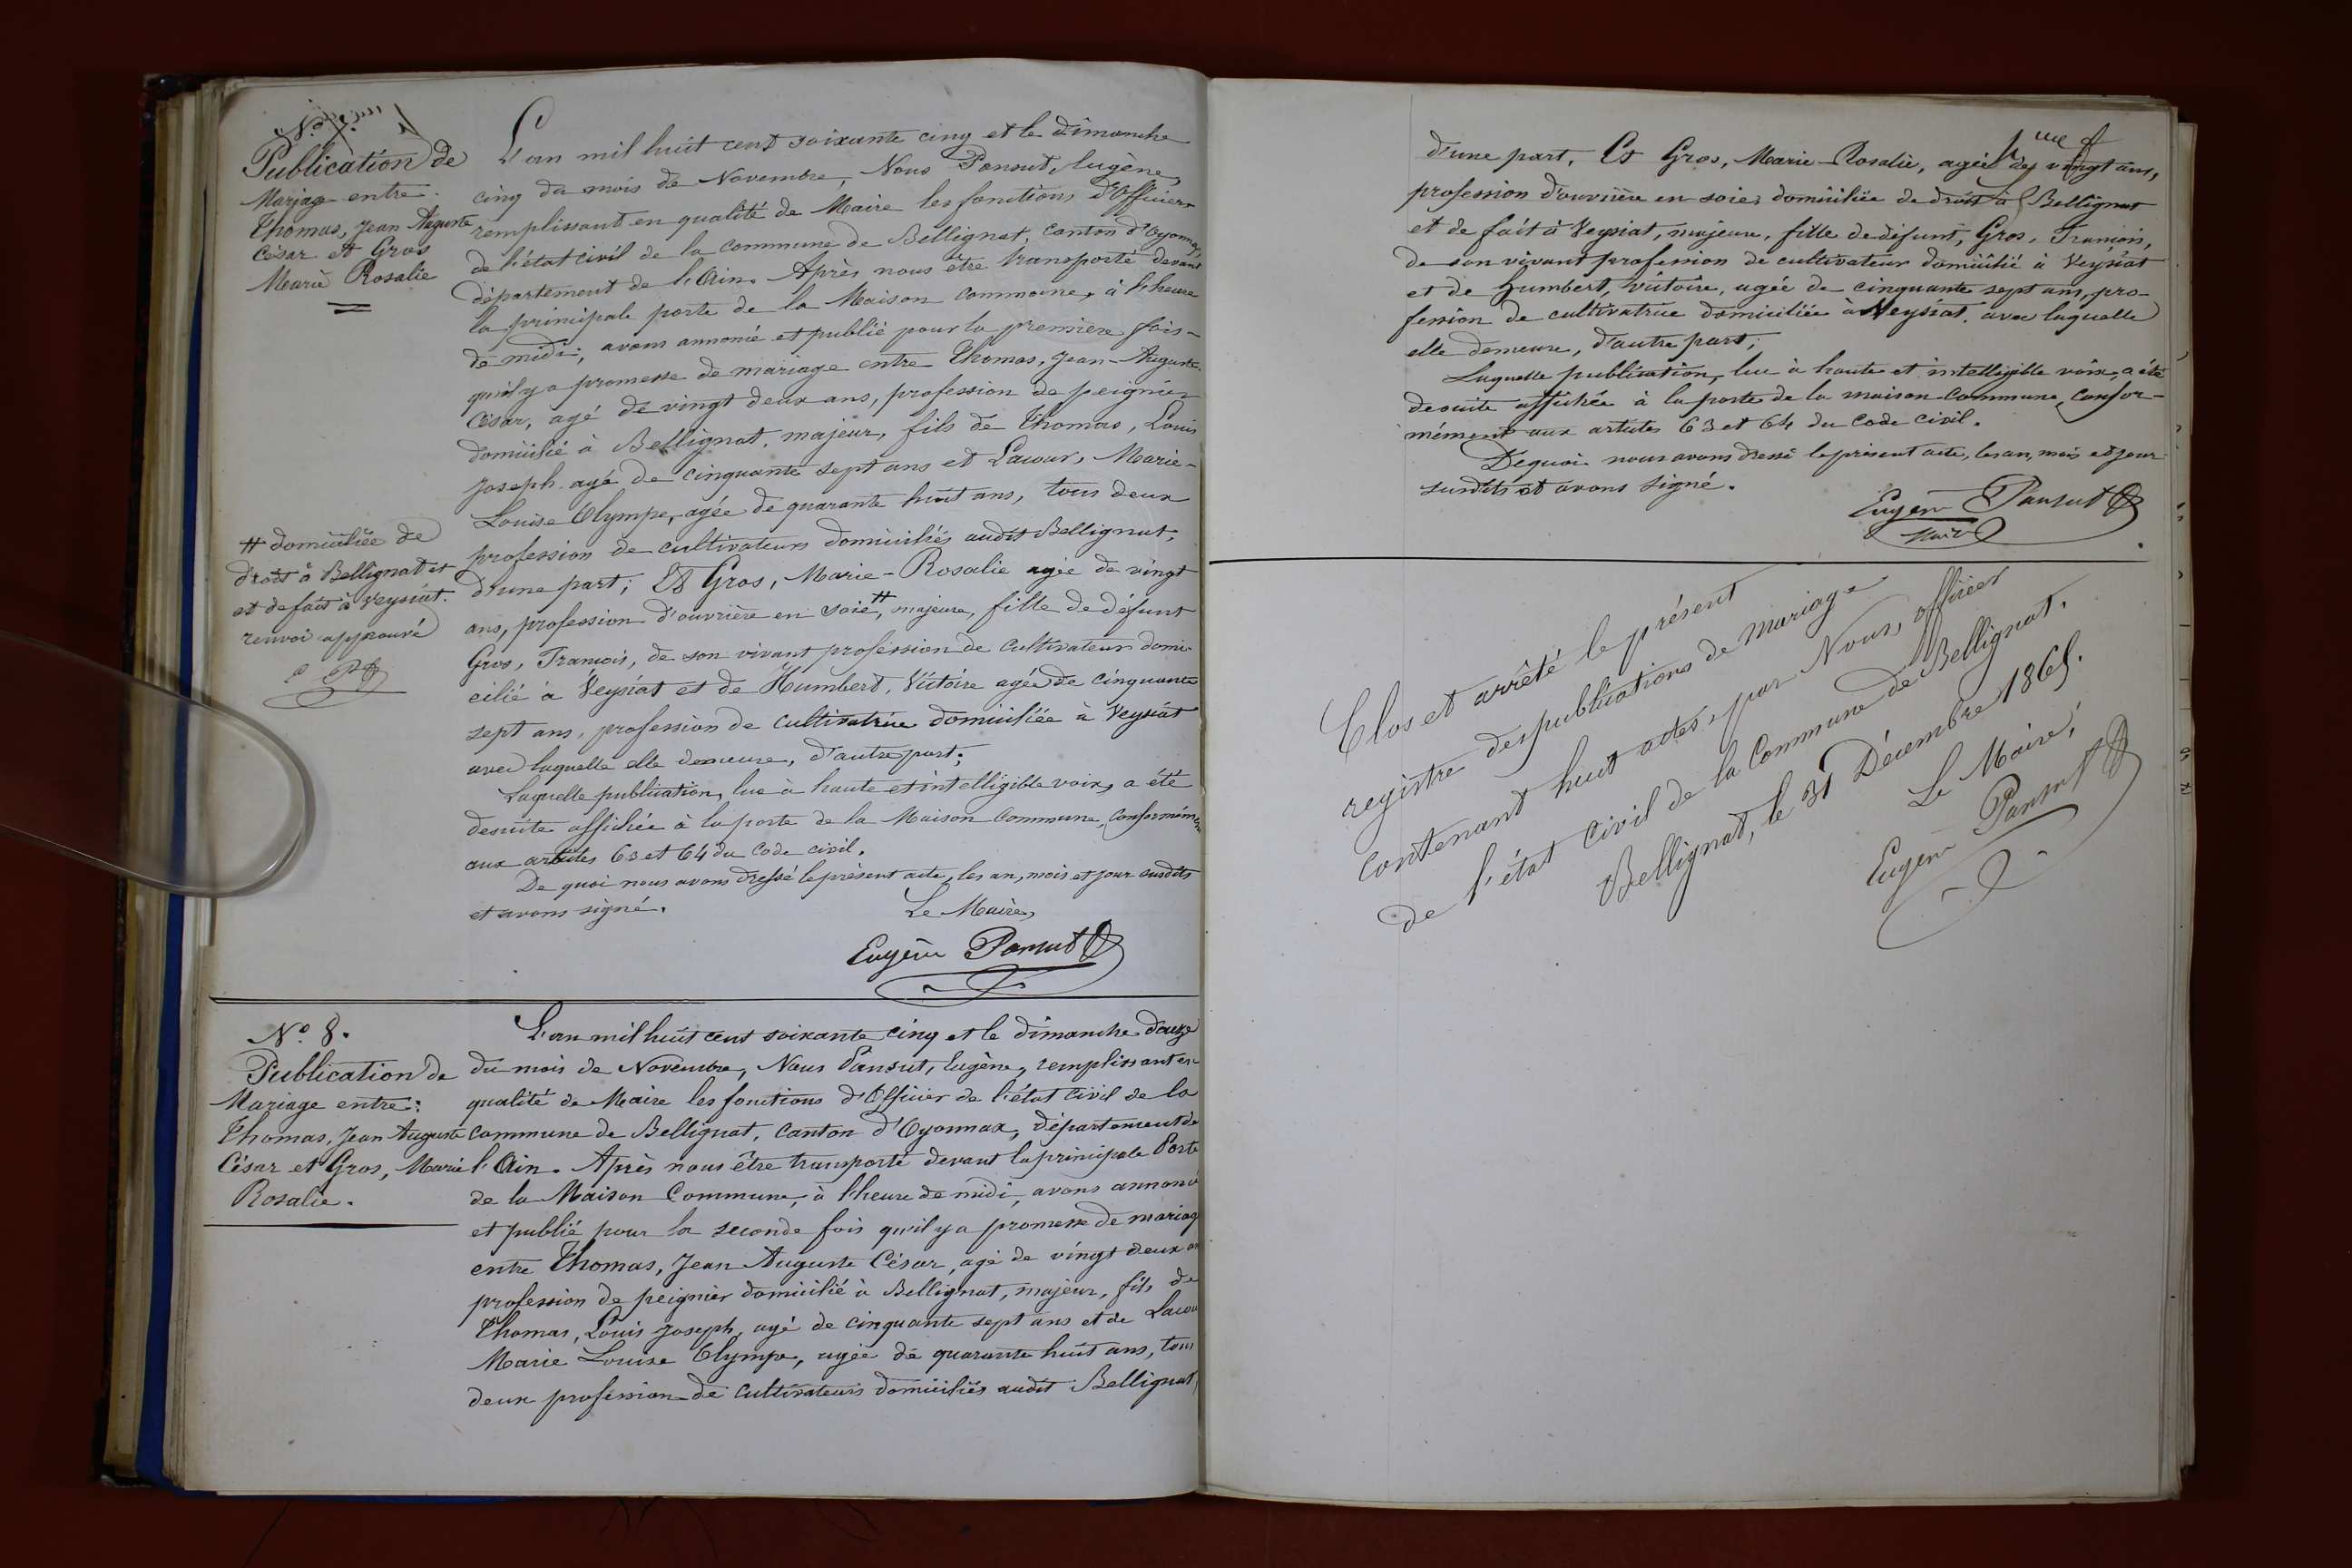 N.º 7.
Publication de
Mariage entre.
Thomas, Jean Auguste
César et Gros
Marie Rosalie
L'an mil huit cent soixante cinq et le dimanche
cinq du mois de Novembre, Nous Pansut, Eugène,
remplissant en qualité de Maire les fonctions d'Officier
de l'état civil de la commune de Bellignat, canton d'Oyonnax,
département de l'Ain. Après nous être transporté devant
la principale porte de la Maison commune, à l'heure
de midi; avons annoncé et publié pour la première fois
qu'il y a promesse de mariage entre Thomas, Jean-Auguste
César, agé de vingt deux ans, profession de peignier
domicilié à Bellignat, majeur, fils de Thomas, Louis
Joseph agé de cinquante sept ans et Lacour, Marie-
Louise Olympe, agée de quarante huit ans, tous deux
profession de cultivateurs domiciliés audit Bellignat,
d'une part; Et Gros, Marie-Rosalie agée de vingt
ans, profession d'ouvrière en soie, # majeure, fille de défunt
Gros, François, de son vivant profession de cultivateur domi-
cilié à Veysiat et de Humbert, Victoire agée de cinquante
sept ans, profession de cultivatrice domiciliée à Veysiat
avec laquelle elle demeure, d'autre part;
Laquelle publication, lue à haute et intelligible voix, a été
desuite affichée à la porte de la Maison commune, conformément
aux articles 63 et 64 du code civil.
De quoi nous avons dressé le présent acte, les an, mois et jour susdits
et avons signé.
Le Maire,
Eugène Pansut
# domiciliée de
droit à Bellignat et
et de fait à Veysiat.
renvoi approuvé
N.º 8.
Publication de
Mariage entre:
Thomas, Jean Auguste
César et Gros, Marie
Rosalie.
L'an mil huit cent soixante cinq et le dimanche douze
du mois de Novembre, Nous Pansut, Eugène, remplissant en
qualité de Maire les fonctions d'Officier de l'état civil de la
commune de Bellignat, canton d'Oyonnax, département de
l'Ain. Après nous être transporté devant la principale Porte
de la Maison Commune, à l'heure de midi, avons annoncé
et publié pour la seconde fois qu'il y a promesse de mariage
entre Thomas, Jean Auguste César, agé de vingt deux ans
profession de peignier domicilié à Bellignat, majeur, fils de
Thomas, Louis Joseph, agé de cinquante sept ans et de Lacour
Marie Louise Olympe, agée de quarante huit ans, tous
deux profession de cultivateurs domiciliés audit Bellignat
d'une part, Et Gros, Marie-Rosalie, agée de vingt ans,
profession d'ouvrière en soie, domiciliée de droit à Bellignat
et de fait à Veysiat, majeure, fille de défunt, Gros, François,
de son vivant profession de cultivateur domicilié à Veysiat
et de Humbert, Victoire, agée de cinquante sept ans, pro-
fession de cultivatrice domiciliée à Veysiat, avec laquelle
elle demeure, d'autre part;
Laquelle publication, lue à haute et intelligible voix, a été
desuite affichée à la porte de la maison commune, confor-
mément aux articles 63 et 64 du code civil.
Dequoi nous avons dressé le présent acte, les an, mois et jour
susdits et avons signé.
Eugène Pansut
Maire
Clos et arrêté le présent
registre des publications de mariage
contenant huit actes, par Nous, officier
de l'état civil de la Commune de Bellignat.
Bellignat, le 31 Décembre 1865.
Le Maire,
Eugène Pansut